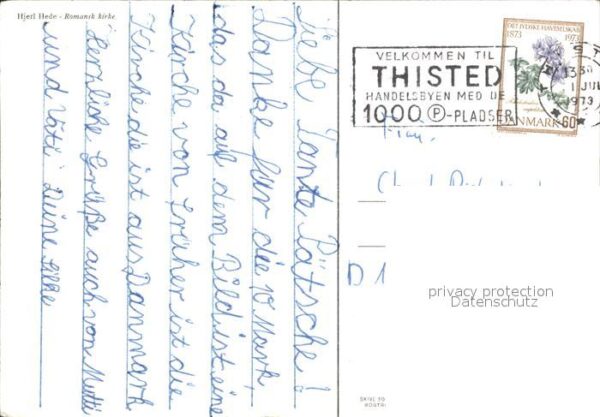 Hjerl Hede - Romansk kirke
Liebe Tante Pätsche!
Danke für die 10 Mark,
das da auf dem Bild ist eine
Kirche von früher ist die
Kirche die ist aus Danmark
Herzliche Grüße auch von Mutti
und Vati Deine Silke
VELKOMMEN TIL
THISTED
HANDELSBYEN MED DE
1000 P-PLADSER
DET JYDSKE HAVESELSKAB
1873 1973
1973
DANMARK 60
Frau
D 1
privacy protection
Datenschutz